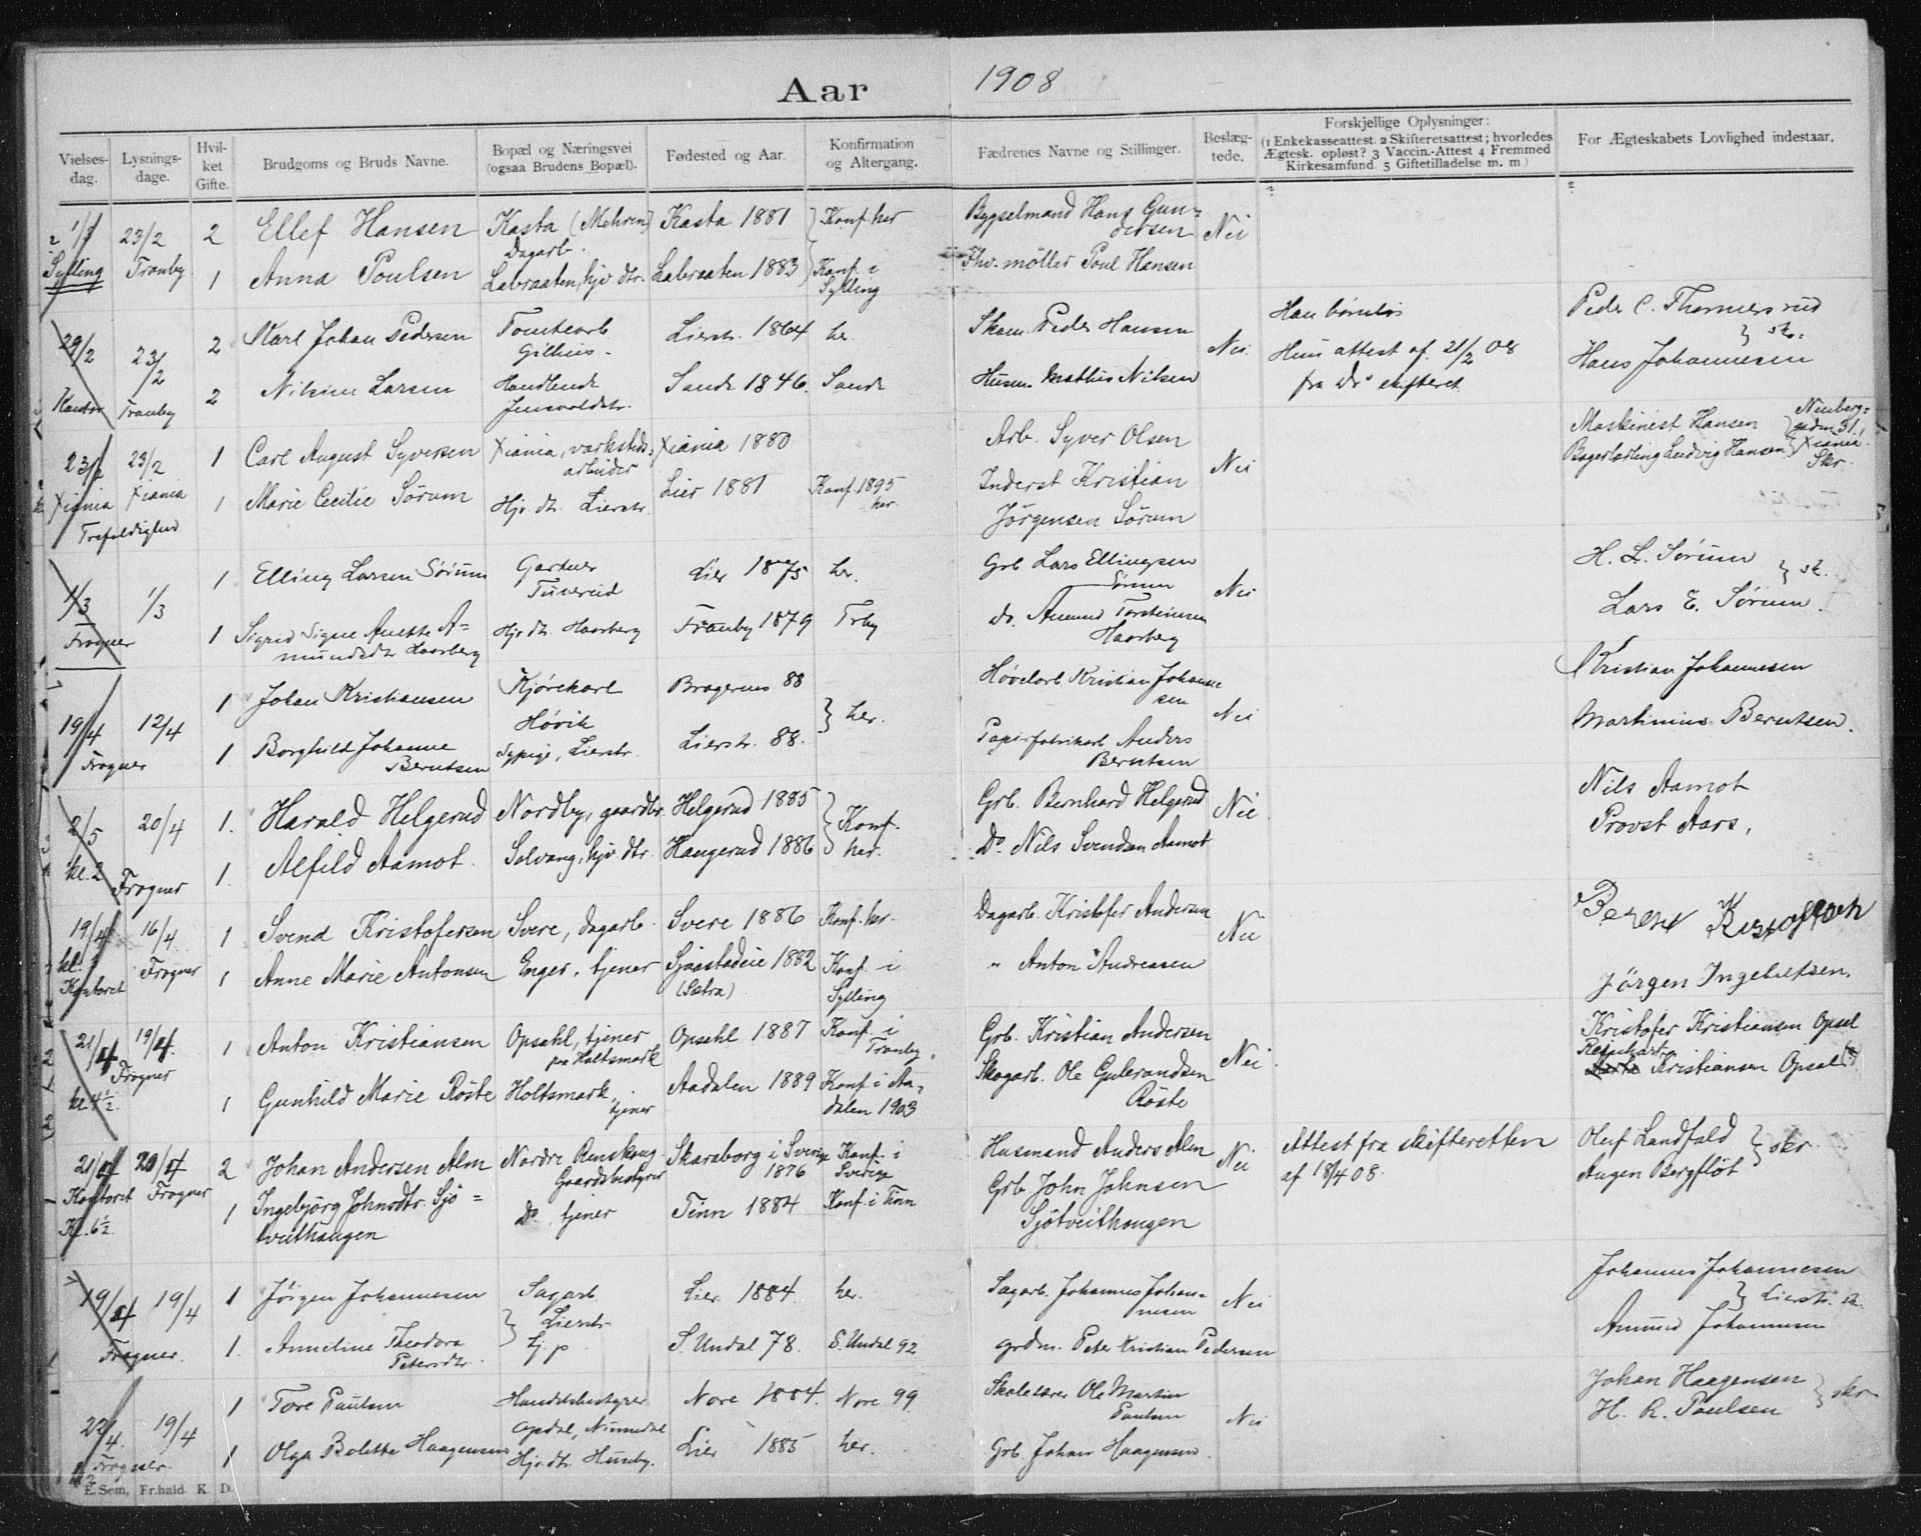 Aar 1908
Vielses-dag. Lysnings-dage. Hvil-ket Gifte. Brudgoms og Bruds Navne. Bopæl og Næringsvei (ogsaa Brudens Bopæl). Fødested og Aar. Konfirmation og Altergang. Fædrenes Navne og Stillinger. Beslæg-tede. Forskjellige Oplysninger: (1 Enkekasseattest. 2 Skifteretsattest; hvorledes Ægtesk. opløst? 3 Vaccin.-Attest 4 Fremmed Kirkesamfund. 5 Giftetilladelse m. m.) For Ægteskabets Lovlighed indestaar.
1/3 23/2 2 Ellef Hansen Kasta (Mehren) Kasta 1881 Konf. her Bygselmand Hans Gun-
Dagarb. dersen Nei
Sylling Tranby 1 Anna Poulsen Labraaten, hjv. dtr. Labraaten 1883 Konf. i Fhv. möller Poul Hansen
Sylling
29/2 23/2 2 Karl Johan Pedersen Tomtearb Lierstr. 1864 her. Skom. Peder Hansen Han barnløs Peder C. Thorners rud
Gilhus. Nei Hun attest af 21/2 08 } sk.
Kontor Tranby 2 Nilsine Larsen Handlende Sande 1846. Sande Husm. Mathis Nilsen fra Ds skifteret Hans Johannesen
23/2 23/2 1 Carl August Syversen Xiania, verksteds- Xiania 1880 Arb. Syver Olsen Maskinist Hansen
arbeider Nei Bagerlærling Ludvig Hansen Xiania
Skr.
Xiania Xiania 1 Marie Cecilie Sörum Hjv. dtr. Lierstr. Lier 1881 Konf. 1895 Inderst Kristian
her. Jörgensen Sörum
Trefoldighed
1/3 1/3 1 Elling Larsen Sörum Gartner Lier 1875 her. Grb Lars Ellingsen H. L. Sørum
Tuverud Sörum Nei } sk.
Frogner 1 Sigrid Signe Anette A- Hjv. dtr. Haarberg Tranby 1879 Trby do. Amund Torsteinsen Lars E. Sørum.
mundsdtr Haarberg Haarberg
19/4 12/4 1 Johan Kristiansen Kjørekarl Bragernes 88 Høvelarb Kristian Johanne Kristian Johannesen
Høvik } her. sen Nei
Frogner 1 Borghild Johanne Sypige, Lierstr. Lierstr. 88. Papirfabrikarb Anders Martinius Berntsen.
Berntsen Berntsen
2/5 20/4 1. Harald Helgerud Nordby, gaardbr. Helgerud 1885 Konf. Grb. Bernhard Helgerud Nei Nils Aamot
kl. 2 Frogner 1. Alfild Aamot. Solvang, hjv. dtr. Haugerud 1886 her. Do. Nils Svendsen Aamot Provst Aars.
19/4 16/4 1 Svend Kristofersen Svere, dagarb. Svere 1886 Konf. her. Dagarb. Kristofer Andersen Nei
kl.
Kontoret Frogner 1 Anne Marie Antonsen Enger, tjener Sjaastadeie 1882 Konf. i " Anton Andreasen Jörgen Ingebretsen.
(Sætra) Sylling
21/4 19/4. 1 Anton Kristiansen Opsahl, tjener Opsahl 1887 Konf. i Grb. Kristian Andersen Kristofer Kristiansen Opsal
paa Holtsmark Tranby. Nei
Frogner Reinhart Kristiansen Opsal
kl 4½ 1 Gunhild Marie Röste Holtsmark, Aadalen 1889 Konf. i Aa- Skogarb. Ole Gulbrandsen
tjener dalen 1903 Röste
21/4 20/4 2 Johan Andersen Alm Nordre Renskoug Skaraborg i Sverige Konf. i Husmand Anders Alm Nei Attest fra skifteretten Oluf Landfald
Gaardsbestyrer 1876 Sverige af 18/4 08. } skr
Kontoret Frogner 1 Ingebjörg Johnsdtr. Sjö- Do tjener Tinn 1884 Konf. i Tinn Grb John Johnsen Augen Bergflöt
Kl. 6½ tveithaugen Sjötveithaugen
19/4 19/4 1 Jörgen Johannesen Sagarb. Lier 1884. her. Sagarb. Johannes Johan- Nei Johannes Johannesen
Lierstr. nesen } Lierstr. sk.
Frogner 1. Anneline Theodora tj. p. S. Undal 78. S. Undal 92 grdm. Peter Kristian Pedersen Amund Johannesen
Petersdtr.
22/4. 19/4 1 Tore Paulsen Handelsbestyrer Nore 1884. Nore 99 Skolelærer Ole Martin Johan Haagensen
Opdal, Numedal Paulsen Nei } skr
Frogner. 1 Olga Bolette Haagensen Hjv. dtr. Huseby. Lier 1885 her. Grb Johan Haagensen H. R. Paulsen
E. Sem, Fr.hald K. D.